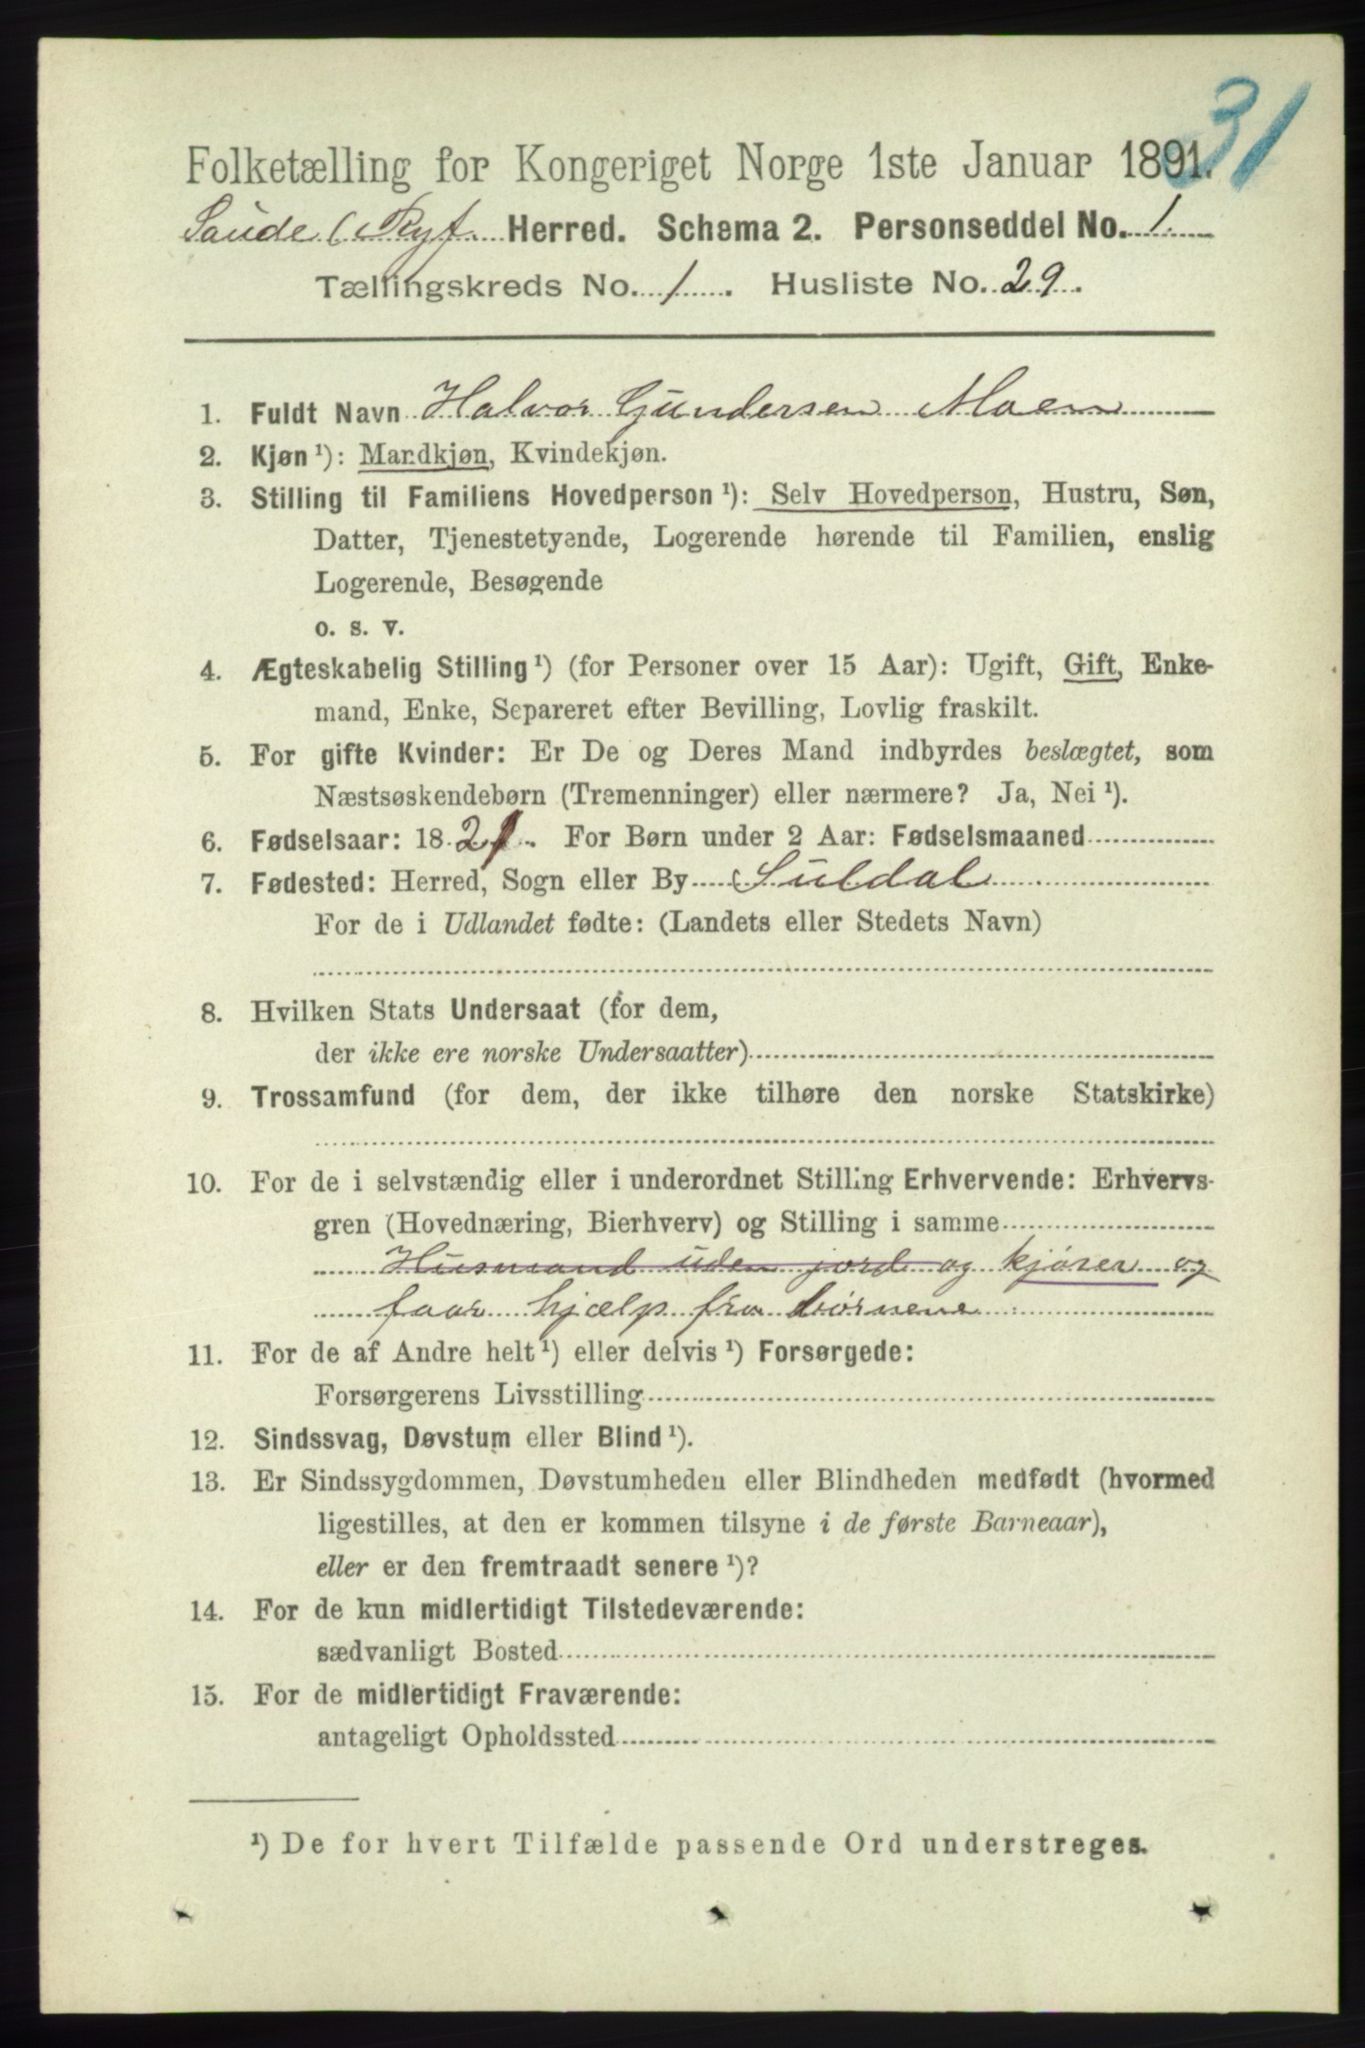 31
Folketælling for Kongeriget Norge 1ste Januar 1891.
Saude (Ryf. Herred. Schema 2. Personseddel No. 1
Tællingskreds No. 1. Husliste No. 29.
1. Fuldt Navn Halvor Gundersen Moen
2. Kjøn ¹): Mandkjøn, Kvindekjøn.
3. Stilling til Familiens Hovedperson ¹): Selv Hovedperson, Hustru, Søn,
Datter, Tjenestetyende, Logerende hørende til Familien, enslig
Logerende, Besøgende
o. s. v.
4. Ægteskabelig Stilling ¹) (for Personer over 15 Aar): Ugift, Gift, Enke-
mand, Enke, Separeret efter Bevilling, Lovlig fraskilt.
5. For gifte Kvinder: Er De og Deres Mand indbyrdes beslægtet, som
Næstsøskendebørn (Tremenninger) eller nærmere? Ja, Nei ¹).
6. Fødselsaar: 1821. For Børn under 2 Aar: Fødselsmaaned
7. Fødested: Herred, Sogn eller By Suldal
For de i Udlandet fødte: (Landets eller Stedets Navn)
8. Hvilken Stats Undersaat (for dem,
der ikke ere norske Undersaatter)
9. Trossamfund (for dem, der ikke tilhøre den norske Statskirke)
10. For de i selvstændig eller i underordnet Stilling Erhvervende: Erhvervs-
gren (Hovednæring, Bierhverv) og Stilling i samme
Husmand uden jord og kjører og
faar hjælp fra børnene
11. For de af Andre helt ¹) eller delvis ¹) Forsørgede:
Forsørgerens Livsstilling
12. Sindssvag, Døvstum eller Blind ¹).
13. Er Sindssygdommen, Døvstumheden eller Blindheden medfødt (hvormed
ligestilles, at den er kommen tilsyne i de første Barneaar),
eller er den fremtraadt senere ¹)?
14. For de kun midlertidigt Tilstedeværende:
sædvanligt Bosted
15. For de midlertidigt Fraværende:
antageligt Opholdssted
¹) De for hvert Tilfælde passende Ord understreges.